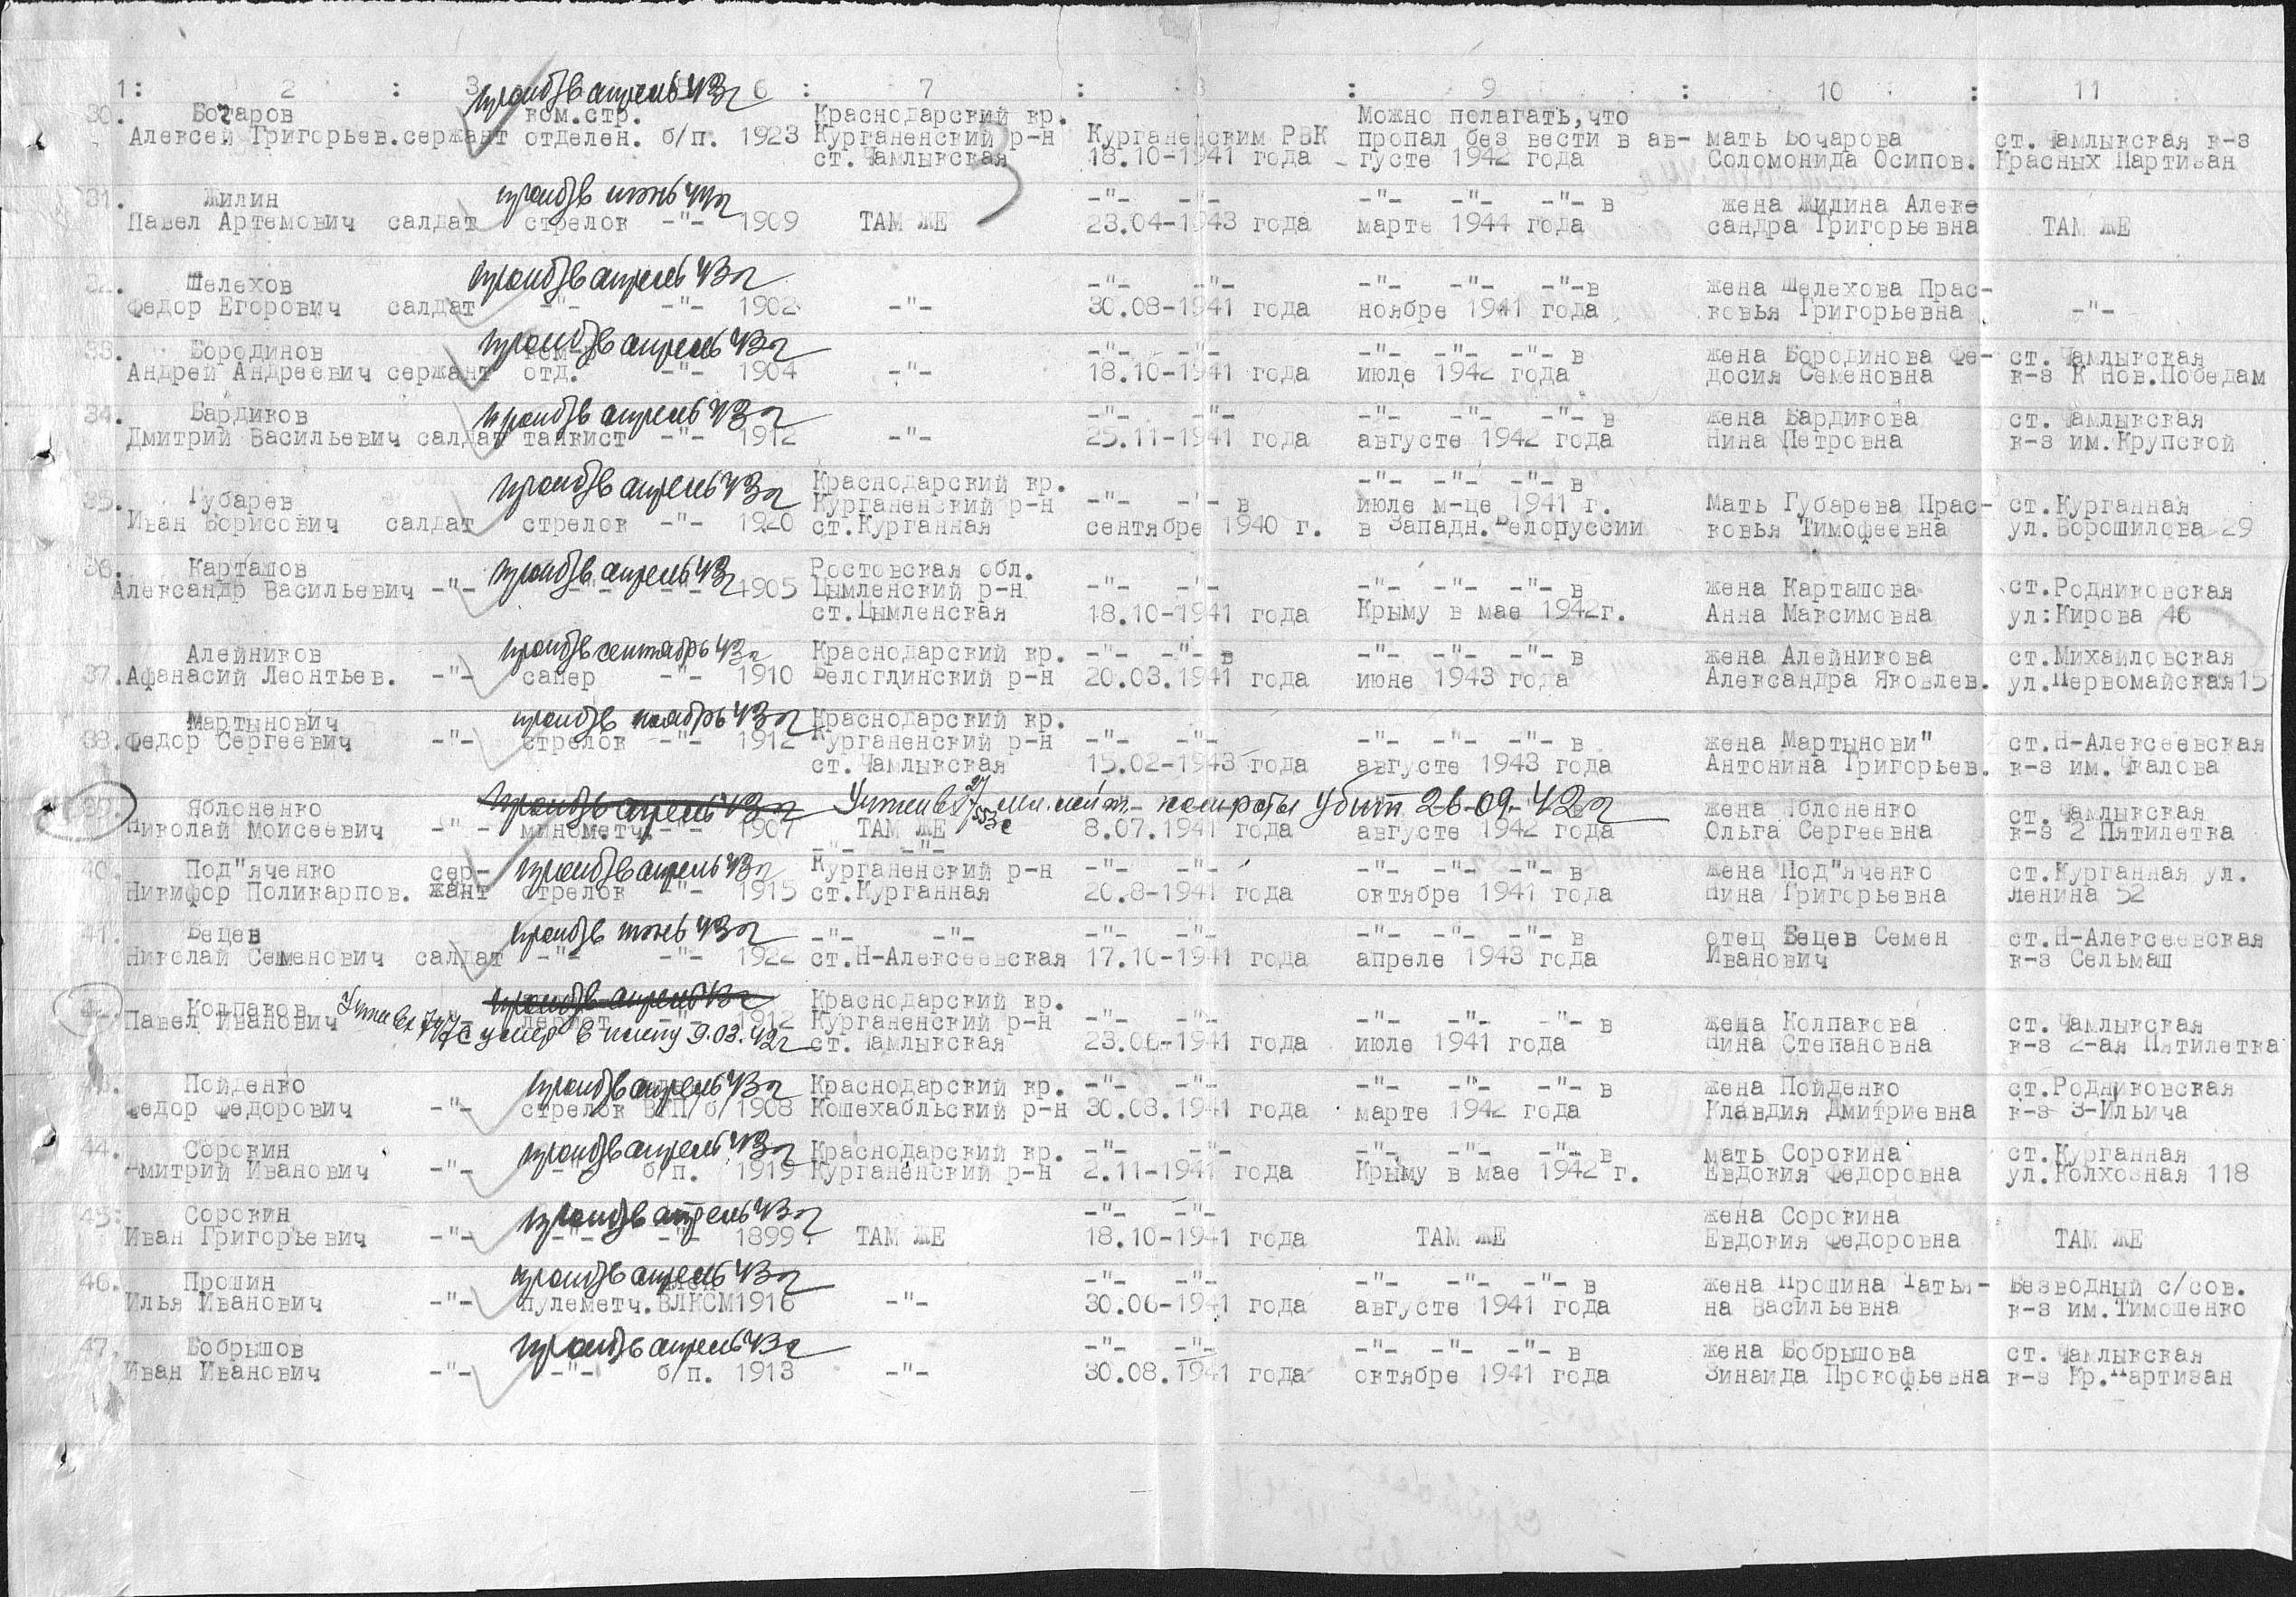 1: 2 : 3 6 : 7 : 8 : 9 : 10 : 11
проп б/в апрель 43 г
30. Бочаров ком.стр. Краснодарский кр. Можно полагать,что
Алексей Григорьев.сержант отделен. б/п. 1923 Курганенский р-н Курганенским РВК пропал без вести в ав- мать Бочарова ст.Чамлыкская к-з
ст.Чамлыкская 18.10-1941 года густе 1942 года Соломонида Осипов. Красных Партизан
3
проп б/в июнь 44 г
31. Жилин -"- -"- -"- -"- -"- в жена Жилина Алекс
Павел Артемович салдат стрелок -"- 1909 ТАМ ЖЕ 23.04-1943 года марте 1944 года сандра Григорьевна ТАМ ЖЕ
проп б/в апрель 43 г
32. Шелехов -"- -"- -"- -"- -"-в жена Шелехова Прас-
Федор Егорович салдат -"- -"- 1902 -"- 30.08-1941 года ноябре 1941 года ковья Григорьевна -"-
проп б/в апрель 43 г
33. Бородинов ком- -"- -"- -"- -"- -"- в жена Бородинова Фе- ст.Чамлыкская
Андрей Андреевич сержант отд. -"- 1904 -"- 18.10-1941 года июле 1942 года досия Семеновна к-з К Нов.Победам
проп б/в апрель 43 г
34. Бардиков -"- -"- -"- -"- -"- в жена Бардикова ст.Чамлыкская
Дмитрий Васильевич салдат танкист -"- 1912 -"- 25.11-1941 года августе 1942 года Нина Петровна к-з им.Крупской
проп б/в апрель 43 г Краснодарский кр. -"- -"- -"- в
35. Губарев Курганенский р-н -"- -"- в июле м-це 1941 г. Мать Губарева Прас- ст.Курганная
Иван Борисович салдат стрелок -"- 1920 ст.Курганная сентябре 1940 г. в Западн.Белоруссии ковья Тимофеевна ул.Ворошилова 29
36. Карташов проп б/в апрель 43 г Ростовская обл.
Александр Васильевич -"- -"- -"- 1905 Цымленский р-н -"- -"- -"- -"- -"- в жена Карташова ст.Родниковская
ст.Цымленская 18.10-1941 года Крыму в мае 1942г. Анна Максимовна ул:Кирова 46
проп б/в сентябрь 43 г
Алейников Краснодарский кр. -"- -"- в -"- -"- -"- в жена Алейникова ст.Михайловская
37.Афанасий Леонтьев. -"- сапер -"- 1910 Белоглинский р-н 20.03.1941 года июне 1943 года Александра Яковлев. ул.Первомайская15
Мартынович проп б/в ноябрь 43 г Краснодарский кр.
38.Федор Сергеевич -"- стрелок -"- 1912 Курганенский р-н -"- -"- -"- -"- -"- в жена Мартынови" ст.Н-Алексеевская
ст.Чамлыкская 15.02-1943 года августе 1943 года Антонина Григорьев. к-з им.Чкалова
проп б/в апрель 43 г Учтен вх 27/553с мл. лейт. ком роты убит 26-09-42 г
39. Яблоненко жена Яблоненко ст.Чамлыкская
Николай Моисеевич -"- минометч. -"- 1907 ТАМ ЖЕ 8.07.1941 года августе 1942 года Ольга Сергеевна к-з 2 Пятилетка
-"- -"-
40. Под"яченко сер- проп б/в апрель 43 г Курганенский р-н -"- -"- -"- -"- -"- в жена Под"яченко ст.Курганная ул.
Никифор Поликарпов. жант стрелок -"- 1915 ст.Курганная 20.8-1941 года октябре 1941 года Нина Григорьевна Ленина 52
41. Бецев проп б/в июнь 43 г -"- -"- -"- -"- -"- -"- -"- в отец Бецев Семен ст.Н-Алексеевская
Николай Семенович салдат -"- -"- 1922 ст.Н-Алексеевская 17.10-1941 года апреле 1943 года Иванович к-з Сельмаш
42. Колпаков проп б/в апрель 43 г Краснодарский кр.
Павел Иванович -"- -"- 1912 Курганенский р-н -"- -"- -"- -"- -"- в жена Колпакова ст.Чамлыкская
Учтен вх 747с умер в плену 9.03.42 г ст.Чамлыкская 23.06-1941 года июле 1941 года Нина Степановна к-з 2-ая Пятилетка
43. Пойденко проп б/в апрель 43 г Краснодарский кр. -"- -"- -"- -"- -"- в жена Пойденко ст.Родниковская
Федор Федорович -"- стрелок ВКП/б/1908 Кошехабльский р-н 30.08.1941 года марте 1942 года Клавдия Дмитриевна к-з 3-Ильича
44. Сорокин проп б/в апрель 43 г Краснодарский кр. -"- -"- -"- -"- -"- в мать Сорокина ст.Курганная
Дмитрий Иванович -"- -"- б/п. 1919 Курганенский р-н 2.11-1941 года Крыму в мае 1942 г. Евдокия Федоровна ул.Колхозная 118
45: Сорокин проп б/в апрель 43 г -"- -"- жена Сорокина
Иван Григорьевич -"- -"- -"- 1899 ТАМ ЖЕ 18.10-1941 года ТАМ ЖЕ Евдокия Федоровна ТАМ ЖЕ
46. Прошин проп б/в апрель 43 г -"- -"- -"- -"- -"- в жена Прошина Татья- Безводный с/сов.
Илья Иванович -"- пулеметч.ВЛКСМ1916 -"- 30.06-1941 года августе 1941 года на Васильевна к-з им.Тимошенко
47. Бобрышов проп б/в апрель 43 г -"- -"- -"- -"- -"- в жена Бобрышова ст.Чамлыкская
Иван Иванович -"- -"- б/п. 1913 -"- 30.08.1941 года октябре 1941 года Зинаида Прокофьевна к-з Кр.Партизан